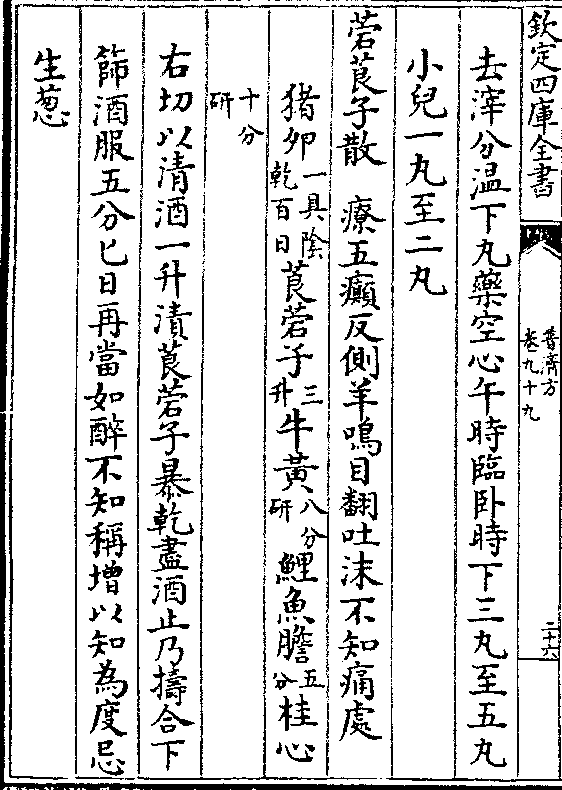 欽定四庫全書
普濟方
卷九十九
二十六
去滓分温下丸藥空心午時臨卧時下三丸至五丸
小兒一丸至二丸
莨菪子散　療五癲反側羊鳴目翻吐沫不知痛處
猪卵一具陰乾百日莨菪子三升牛黃八分研鯉魚膽五分桂心
十分研
右切以清酒一升漬莨菪子暴乾盡酒止乃擣合下
篩酒服五分匕日再當如醉不知稱增以知為度忌
生葱